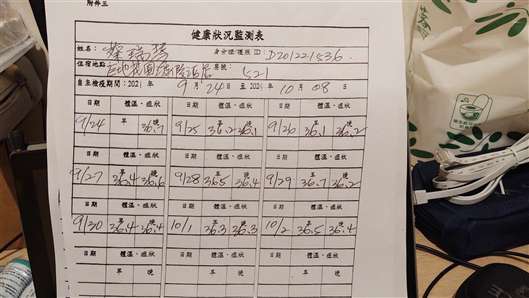 附件三
健康狀況監測表
姓名： 蔡瑞芬 身分證/護照 ID： D201221536
住宿地點 房號： 521
自主檢疫期間：2021年 9 月 24 日 至 2021年 10 月 08 日
日期 體溫、症狀 日期 體溫、症狀 日期 體溫、症狀
早 晚
9/24 36.7 9/25 36.2 36.1 9/26 36.1 36.2
日期 體溫、症狀 日期 體溫、症狀 日期 體溫、症狀
早 晚 早 晚 早 晚
9/27 36.4 36.6 9/28 36.5 36.4 9/29 36.7 36.2
日期 體溫、症狀 日期 體溫、症狀 日期 體溫、症狀
早 晚 早 晚 早 晚
9/30 36.4 36.4 10/1 36.3 36.3 10/2 36.5 36.4
日期 體溫、症狀 日期 體溫、症狀 日期 體溫、症狀
早 晚 早 晚 早 晚
日期 體溫、症狀 日期 體溫、症狀 日期 體溫、症狀